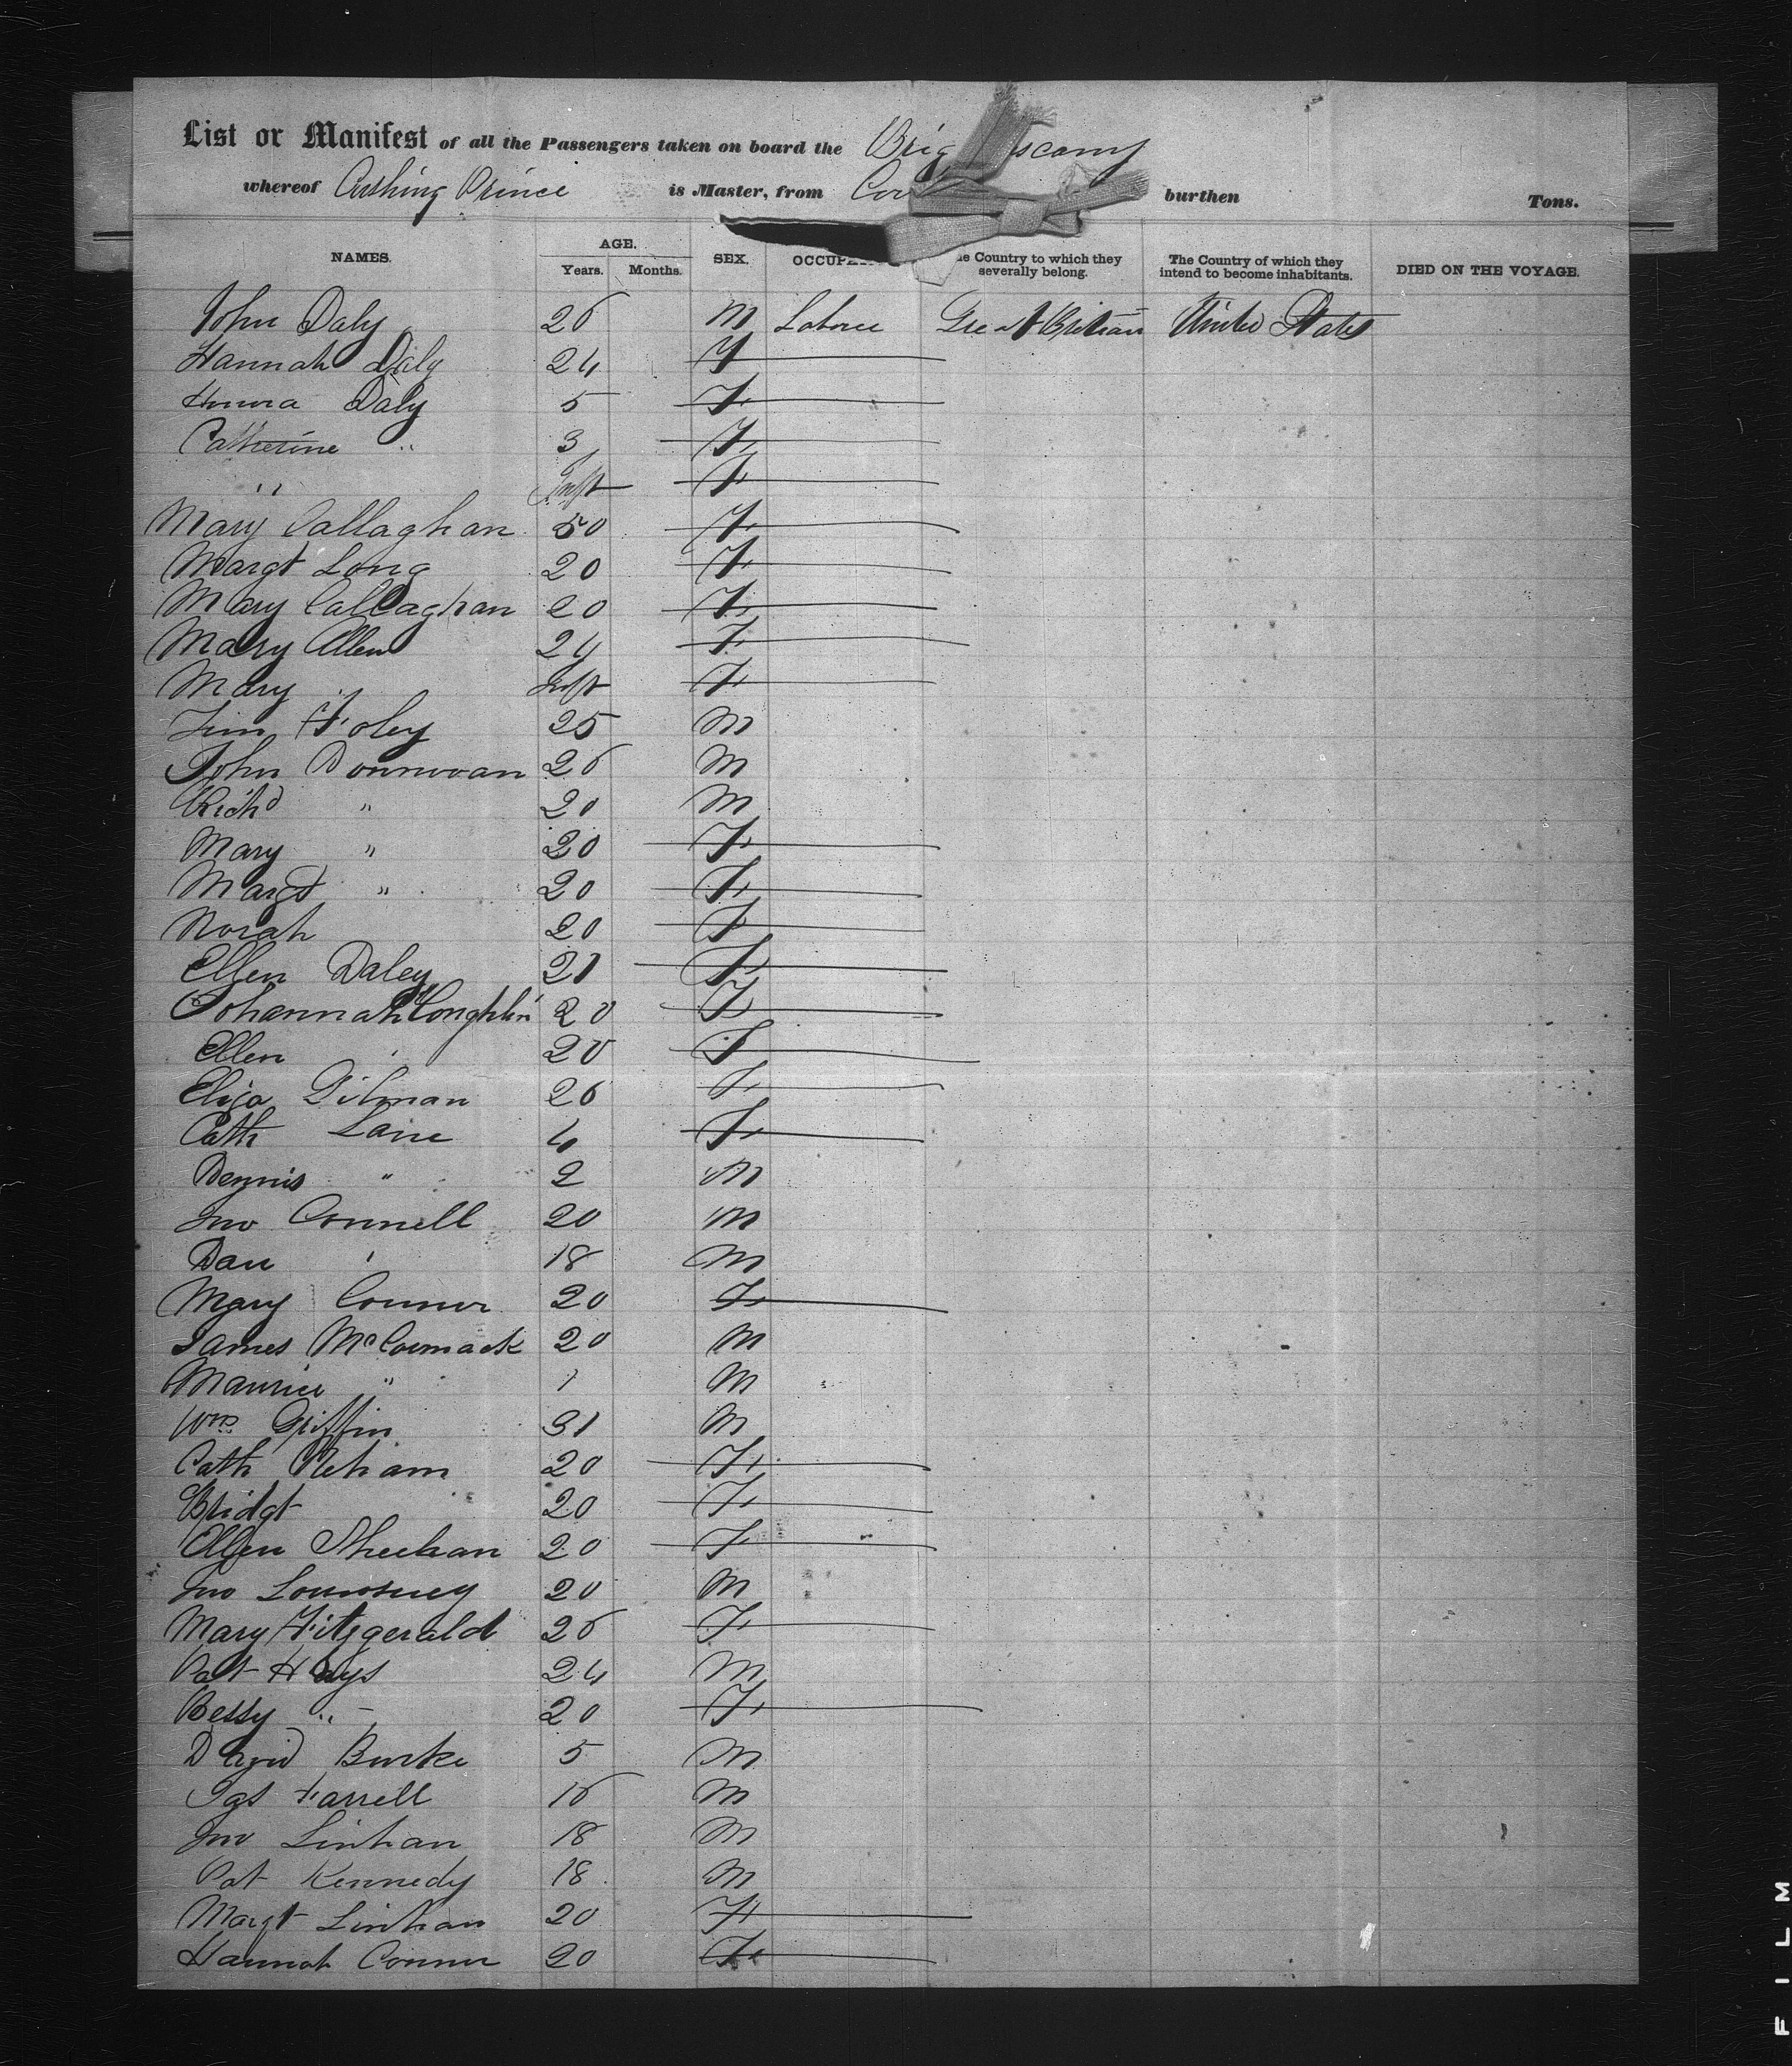 List or Manifest of all the Passengers taken on board the Brig
whereof Cushing Prince is Master, from burthen Tons.
NAMES. AGE. Years. Months. SEX. Country to which they severally belong. The Country of which they intend to become inhabitants. DIED ON THE VOYAGE.
John Daly 26 M Great Britain United States
Hannah Daly 24 F
Daly 5 F
Catherine " 3 F
" Inft F
Mary Callaghan 50 F
Margt Long 20 F
Mary Callaghan 20 F
Mary Allen 24 F
Mary " Inft F
Foley 25 M
John Donnovan 26 M
Richd " 20 M
Mary " 20 F
Margt " 20 F
Norah 20 F
Ellen Daley 21 F
Johannah 20 F
Ellen ' 20 F
Eliza Gilman 26 F
Cath Lane 4 F
Dennis " 2 M
Jno Connell 20 M
Dan ' 18 M
Mary Connor 20 F
James McCormack 20 M
Maurice " 1 M
Wm Griffin 31 M
Cath 20 F
Bridgt 20 F
Ellen Sheehan 20 F
Jno 20 M
Mary Fitzgerald 26 F
Pat Hays 24 M
Bessy " 20 F
David Burke 5 M
Farrell 16 M
Jno Linhan 18 M
Pat Kennedy 18 M
Margt Linhan 20 F
Hannah Connor 20 F
FILM